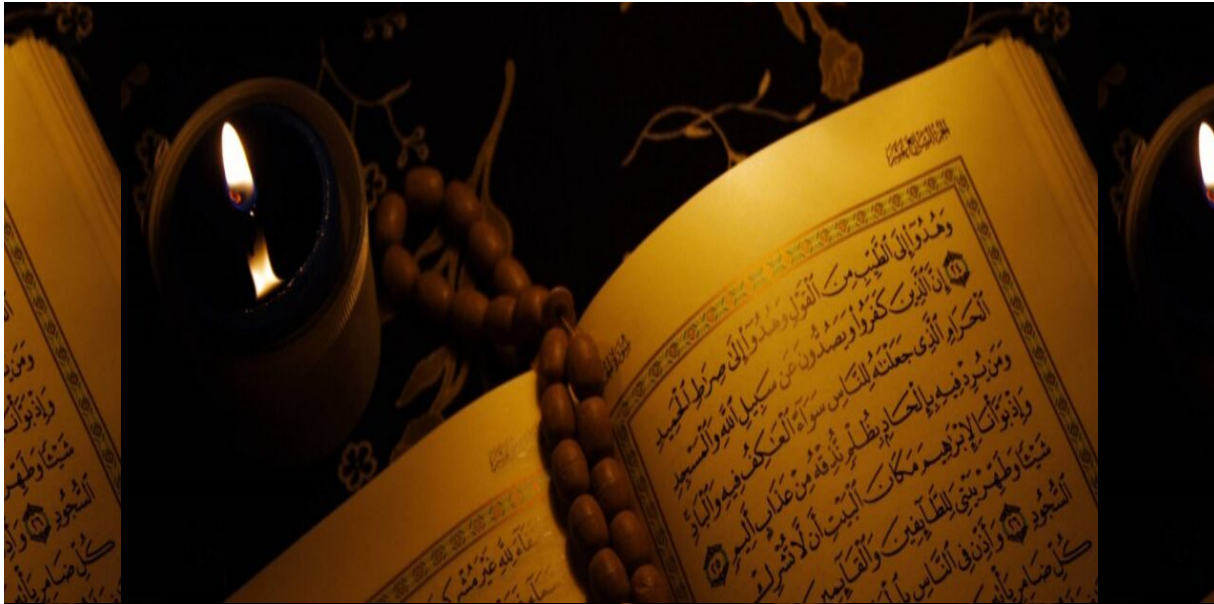 الجزء السابع عشر
وَهُدُوٓا۟ إِلَى ٱلطَّيِّبِ مِنَ ٱلْقَوْلِ وَهُدُوٓا۟ إِلَىٰ صِرَٰطِ ٱلْحَمِيدِ
۝٢٤ إِنَّ ٱلَّذِينَ كَفَرُوا۟ وَيَصُدُّونَ عَن سَبِيلِ ٱللَّهِ وَٱلْمَسْجِدِ
ٱلْحَرَامِ ٱلَّذِى جَعَلْنَٰهُ لِلنَّاسِ سَوَآءً ٱلْعَٰكِفُ فِيهِ وَٱلْبَادِ
وَمَن يُرِدْ فِيهِ بِإِلْحَادٍۭ بِظُلْمٍ نُّذِقْهُ مِنْ عَذَابٍ أَلِيمٍ ۝٢٥
وَإِذْ بَوَّأْنَا لِإِبْرَٰهِيمَ مَكَانَ ٱلْبَيْتِ أَن لَّا تُشْرِكْ
شَيْـًٔا وَطَهِّرْ بَيْتِىَ لِلطَّآئِفِينَ وَٱلْقَآئِمِينَ
ٱلسُّجُودِ ۝٢٦ وَأَذِّن فِى ٱلنَّاسِ
كُلِّ ضَامِرٍ يَأْتِينَ
غَيْرَ مُشْرِكِ